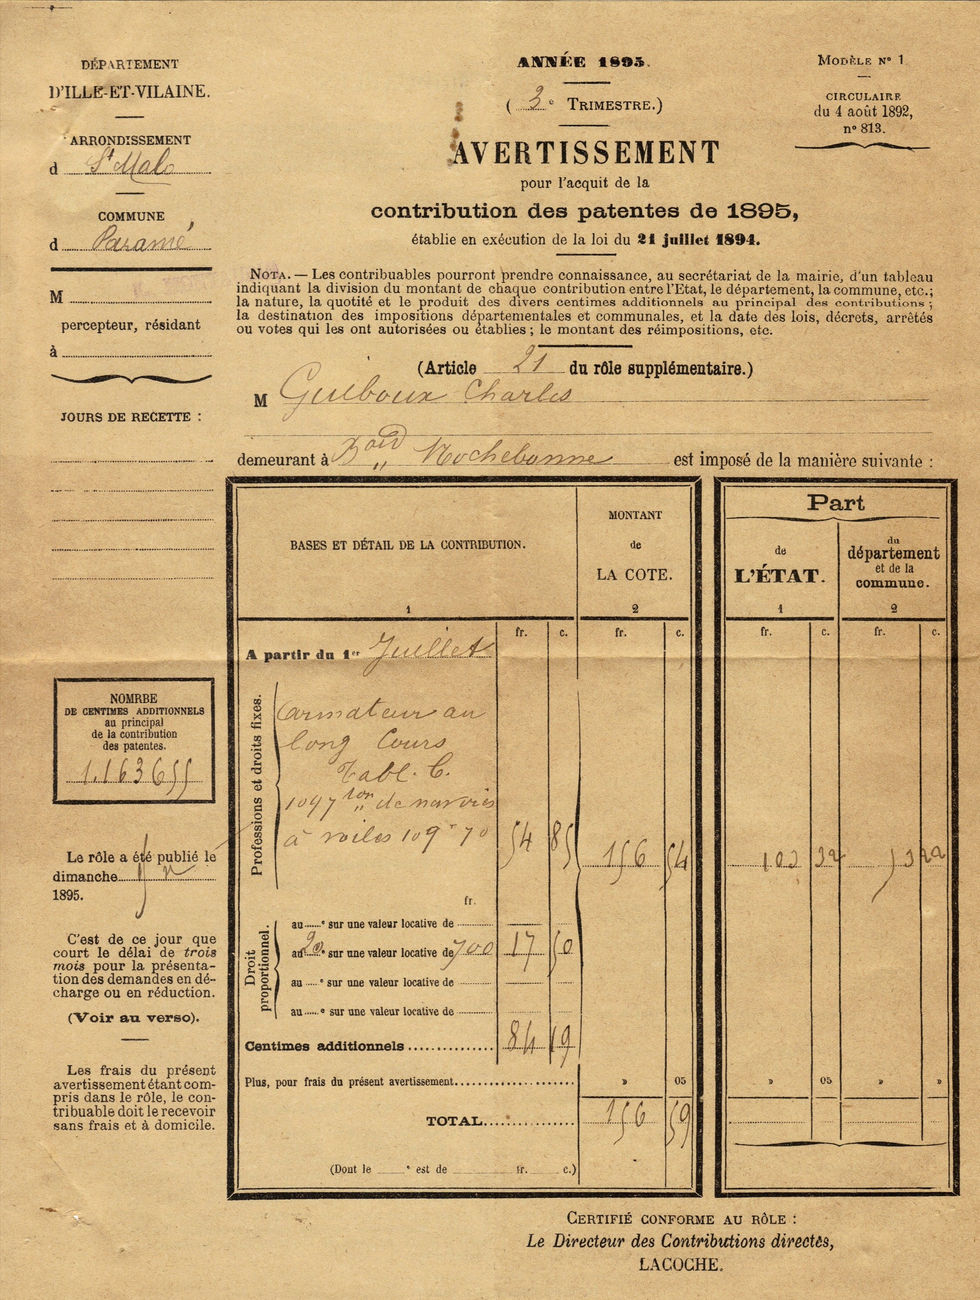 DÉPARTEMENT
D'ILLE-ET-VILAINE.
ARRONDISSEMENT
d St Malo
COMMUNE
d Paramé
M
percepteur, résidant
à
JOURS DE RECETTE :
NOMRBE
DE CENTIMES ADDITIONNELS
au principal
de la contribution
des patentes.
1.163655
Le rôle a été publié le
dimanche
1895.
C'est de ce jour que
court le délai de trois
mois pour la présenta-
tion des demandes en dé-
charge ou en réduction.
(Voir au verso).
Les frais du présent
avertissement étant com-
pris dans le rôle, le con-
tribuable doit le recevoir
sans frais et à domicile.
ANNÉE 1895.
( 3e TRIMESTRE.)
AVERTISSEMENT
pour l'acquit de la
contribution des patentes de 1895,
établie en exécution de la loi du 21 juillet 1894.
MODÈLE No 1
CIRCULAIRE
du 4 août 1892,
no 813.
NOTA. — Les contribuables pourront prendre connaissance, au secrétariat de la mairie, d'un tableau
indiquant la division du montant de chaque contribution entre l'Etat, le département, la commune, etc.;
la nature, la quotité et le produit des divers centimes additionnels au principal des contributions ;
la destination des impositions départementales et communales, et la date des lois, décrets, arrêtés
ou votes qui les ont autorisées ou établies ; le montant des réimpositions, etc.
(Article 21 du rôle supplémentaire.)
M Guiboux Charles
demeurant à Bard Rochebonne est imposé de la manière suivante :
BASES ET DÉTAIL DE LA CONTRIBUTION.
1
MONTANT
de
LA COTE.
2
Part
de
L'ÉTAT.
1
du
département
et de la
commune.
2
fr. c. fr. c. fr. c. fr. c.
A partir du 1er Juillet
Professions et droits fixes.
armateur au
long Cours
Tabl. C.
1097 ton de navires
à voiles 109 f 70
54 85 156 54 103 32 53 22
fr.
Droit
proportionnel.
au e sur une valeur locative de
au 20e sur une valeur locative de 700 17 50
au e sur une valeur locative de
au e sur une valeur locative de
Centimes additionnels 84 19
Plus, pour frais du présent avertissement » 05 » 05 » »
TOTAL 156 59
(Dont le e est de fr. c.)
CERTIFIÉ CONFORME AU RÔLE :
Le Directeur des Contributions directes,
LACOCHE.